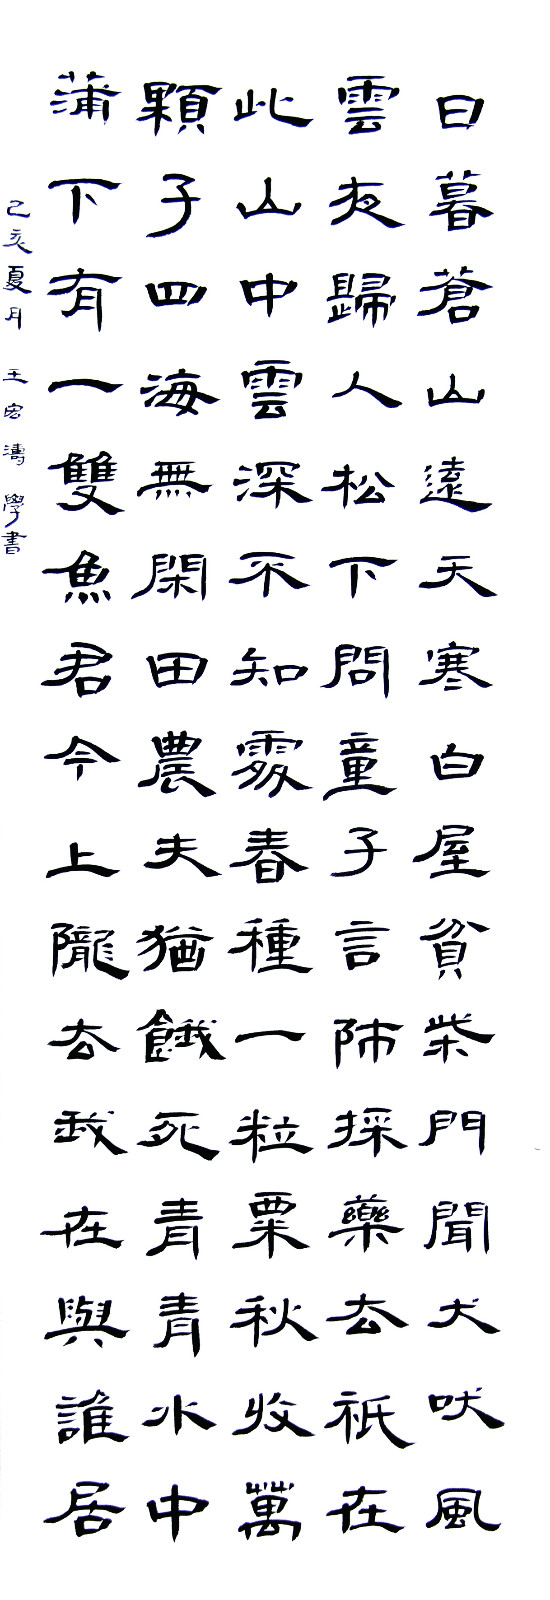 日暮蒼山遠天寒白屋貧柴門聞犬吠風
雲夜歸人松下問童子言師採藥去祇在
此山中雲深不知處春種一粒粟秋收萬
顆子四海無閑田農夫猶餓死青青水中
蒲下有一雙魚君今上隴去我在與誰居
己亥夏月 王宏濤 學書